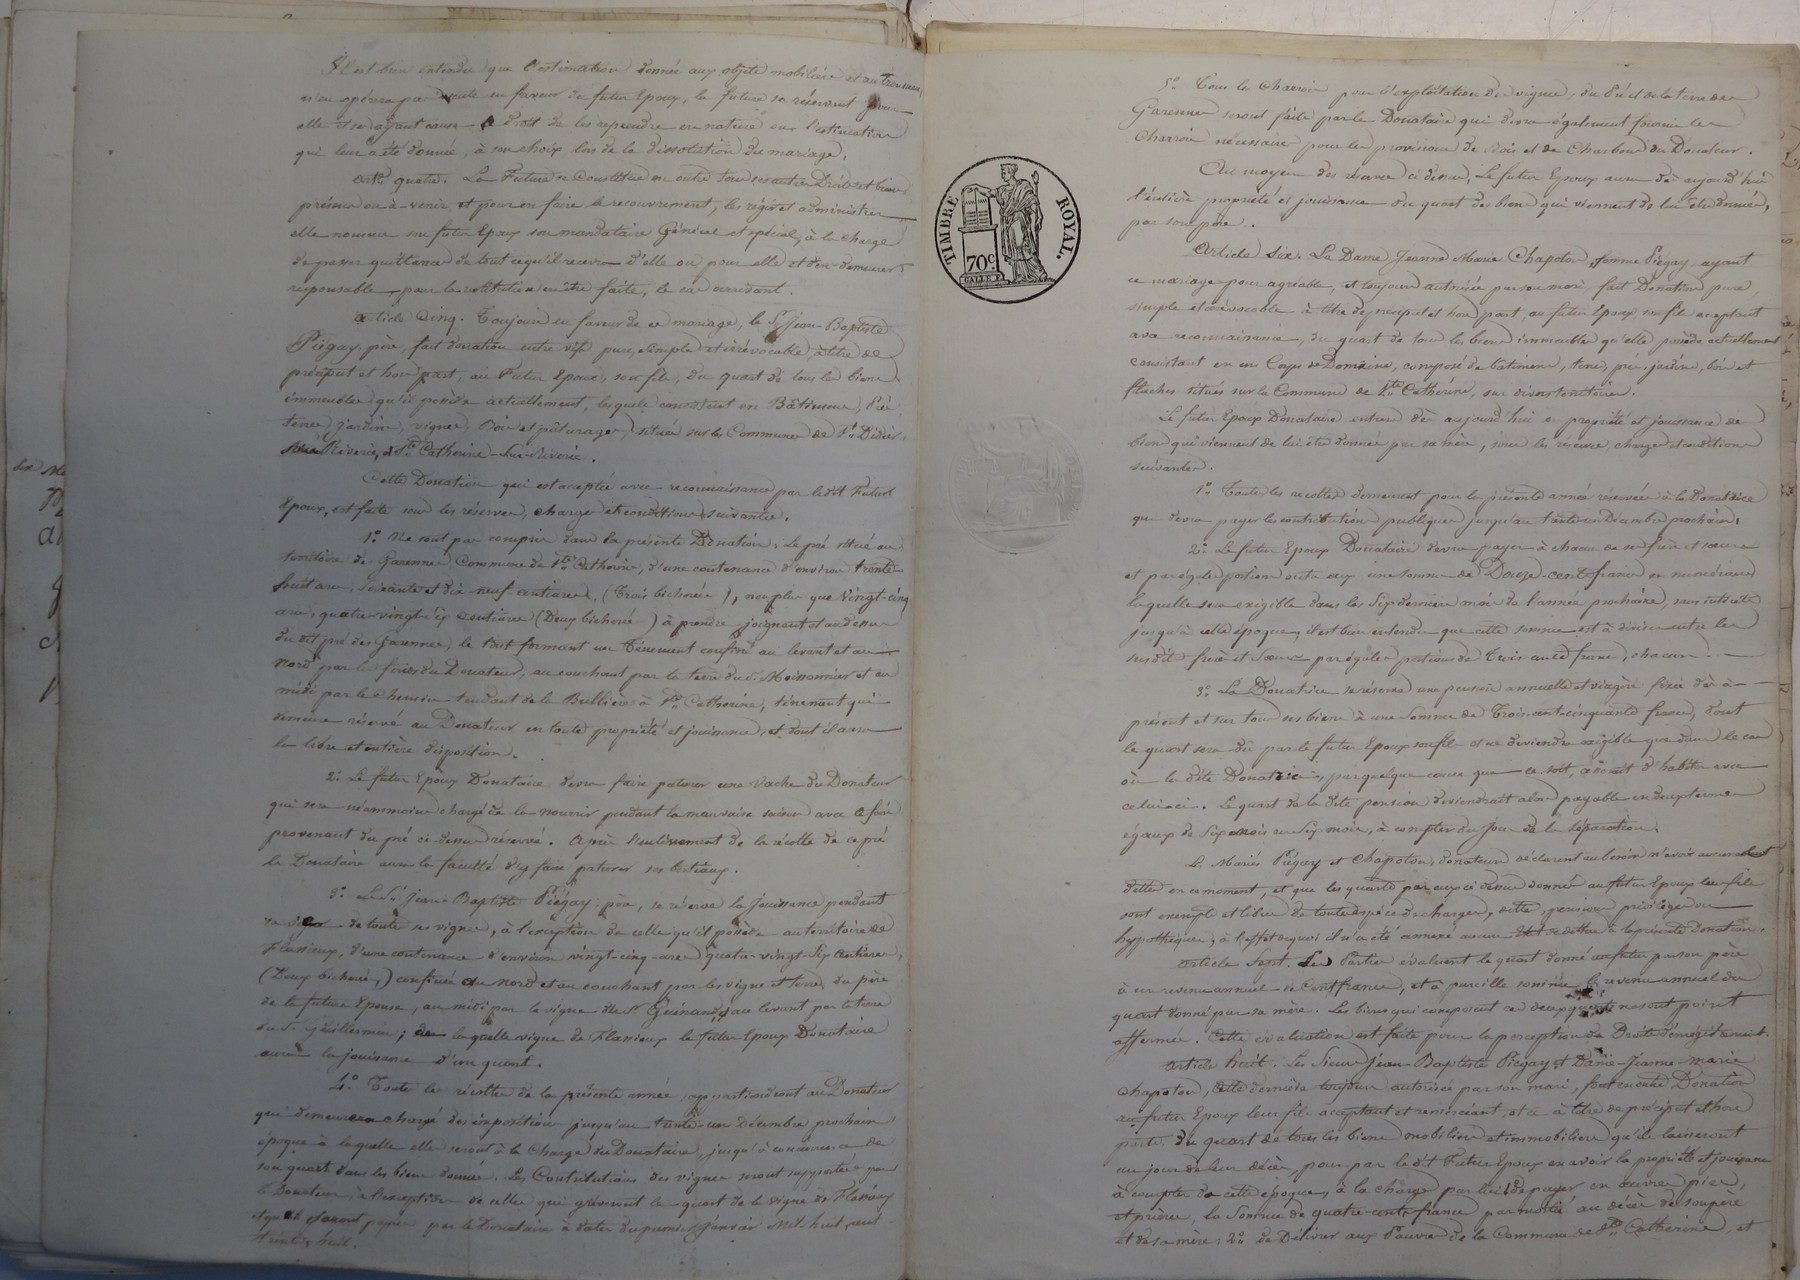 Il est bien entendu que l'estimation donnée aux objets mobiliers et au trousseau,
n'en opérera pas vente en faveur du futur Epoux, la future se réservant pour
elle et ses ayant cause le droit de les reprendre en nature ou l'estimation
qui leur a été donnée, à son choix, lors de la dissolution du mariage.
Art.e quatre. La Future se Constitue en outre tous ses autres Droits et biens
présens ou à-venir et pour en faire le recouvrement, les régir et administrer
elle nomme son futur Epoux son mandataire Général et spécial, à la charge
de passer quittance de tout ce qu'il recevra d'elle ou pour elle et d'en demeurer
responsable, pour la restitution en être faite, le cas arrivant.
Article Cinq. Toujours en faveur de ce mariage, le Sr Jean-Baptiste
Piégay, père, fait donation entre vifs pure, simple et irrévocable à titre de
préciput et hors part, au Futur Epoux, son fils, du quart de tous les biens
immeubles qu'il possède actuellement, lesquels consistent en Bâtimens, Prés
terres, jardins, vignes, Bois et pâturages, situés sur les Communes de St Didier
sous Riverie, & Ste Catherine-Sur-Riverie.
Cette Donation qui est acceptée avec reconnaissance par le dit Futur
Epoux, est faite sous les réserves, charges et conditions suivantes.
1.° Ne sont pas compris dans la présente Donation: Le pré situé au
territoire des Garennes, Commune de Ste Catherine, d'une contenance d'environ trente
huit ares, soixante et dix neuf centiares, (Trois bicherées), non plus que Vingt-cinq
ares, quatre-vingt-six Centiares (Deux bicherées) à prendre joignant et au dessus
du dit pré des Garennes, le tout formant un Ténement confiné au levant et au
Nord par les fonds du Donateur, au couchant par la terre du Sr Moissonnier et au
midi par le Chemin tendant de la Bullière à Ste Catherine, ténement qui
demeure réservé au Donateur en toute propriété et jouissance, et dont il aura
la libre et entière disposition.
2.° Le futur Epoux Donataire devra faire paturer une Vache du Donateur
qui sera néanmoins chargé de la nourrir pendant la mauvaise saison avec le foin
provenant du pré ci-dessus réservé. Après l'enlèvement de la récolte de ce pré
le Donataire aura la faculté d'y faire paturer ses bestiaux.
3.° Le Sr Jean-Baptiste Piégay, père, se réserve la Jouissance pendant
sa vie de toutes ses vignes, à l'exception de celle qu'il possède au territoire de
Flassieux, d'une contenance d'environ vingt-cinq ares quatre-vingt-six Centiares,
(Deux bicherées,) confinée au nord et au couchant par les vigne et terre du père
de la future Epouse, au midi par la vigne du Sr Guénard, & au levant par la terre
du Sr Guillermin; de laquelle vigne de Flassieux le futur Epoux Donataire
aura la jouissance d'un quart.
4.° Toutes les récoltes de la présente année appartiendront au Donateur
qui demeurera chargé des impositions jusqu'au trente-un Décembre prochain
époque à laquelle elles seront à la Charge du Donataire, jusqu'à concurrence de
son quart dans les biens donnés. Les Contributions des vignes seront supportées par
le Donateur à l'exception de celles qui grèveront le quart de la vigne de Flassieux
et qui seront payées par le Donataire à dater du premier Janvier Mil huit cent
trente huit.
TIMBRE ROYAL.
70c
5.° Tous les Charrois pour l'exploitation des vignes, du Pré et de la terre des
Garennes seront faits par le Donataire qui devra également fournir les
Charrois nécessaires pour les provisions de Bois et de Charbon du Donateur.
Au moyen des réserves ci dessus, Le futur Epoux aura dès aujourd'hui
l'entière propriété et jouissance du quart des biens qui viennent de lui être donnés,
par son père.
Article Six. La Dame Jeanne Marie Chapoton, femme Piégay ayant
ce mariage pour agréable, et toujours autorisée par son mari, fait Donation pure,
simple et irrévocable à titre de préciput et hors part, au futur Epoux son fils acceptant
avec reconnaissance, du quart de tous les biens immeubles qu'elle possède actuellement
consistant en un Corps de Domaine, composé de bâtimens, terres, prés, jardins, bois et
flaches situés sur la Commune de Ste Catherine, sur divers territoires.
Le futur Epoux Donataire entrera dès aujourd'hui en propriété et jouissance des
biens qui viennent de lui être donnés par sa mère, sous les réserves, charges et conditions
suivantes.
1.° Toutes les récoltes demeurent pour la présente année réservées à la Donatrice
qui devra payer les contributions publiques jusqu'au trente un Décembre prochain.
2.° Le futur Epoux Donataire devra payer à chacun de ses frères et sœurs
et par égales portions entre eux une somme de Douze-cents francs en numéraire
laquelle sera exigible dans les Six derniers mois de l'année prochaine, sans intérêts
jusqu'à cette époque, il est bien entendu que cette somme est à diviser entre les
susdits frères et Sœurs par égales portions de Trois cents francs, chacun.
3.° La Donatrice se réserve une pension annuelle et viagère fixée dès à
présent et sur tous ses biens à une Somme de Trois-cent-cinquante francs, dont
le quart sera dû par le futur Epoux son fils et ne deviendra exigible que dans le cas
où la dite Donatrice, par quelque cause que ce soit, cesserait d'habiter avec
celui-ci. Le quart de la dite pension deviendrait alors payable en deux termes
égaux de Six mois en Six mois, à compter du jour de la séparation.
Les Mariés Piégay et Chapoton, donateurs déclarent au besoin n'avoir aucune
dette en ce moment, et que les quarts par eux ci dessus donnés au futur Epoux leur fils
sont exempts et libres de toute espèce de charges, dettes, pensions, privilèges ou
hypothèques, à l'effet de quoi il n'a été annexé aucun état de dettes à la présente donation.
Article Sept. Les Parties évaluent le quart donné au futur par son père
à un revenu annuel de Cent francs, et à pareille somme le revenu annuel du
quart donné par sa mère. Les biens qui composent ces deux quarts ne sont point
affermés. Cette évaluation est faite pour la perception des Droits d'enregistrement.
Article huit. Les Sieur Jean-Baptiste Piégay & Dame Jeanne Marie
Chapoton, cette dernière toujours autorisée par son mari, font en outre Donation
au futur Epoux leur fils acceptant et remerciant, et ce à titre de préciput et hors
parts. Du quart de tous les biens mobiliers et immobiliers qu'ils laisseront
au jour de leur décès, pour par le dit Futur Epoux en avoir la propriété et jouissance
à compter de cette époque, à la charge par lui: 1.° de payer en œuvres pies,
et prières, la Somme de quatre-cents francs par moitié au décès de son père
et de sa mère; 2.° de Délivrer aux Pauvres de la Commune de Ste Catherine, et